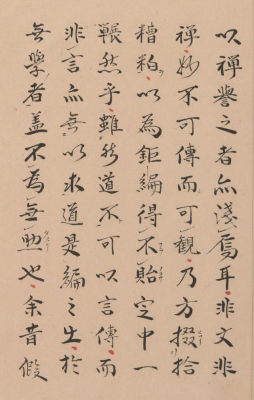 以禅誉之者亦淺焉耳非文非
禅妙不可傳而可觀乃方掇拾
糟粕以為鉅編得不貽定中一
囅然乎雖然道不可以言傳而
非言亦無以求道是編之出於
無學者盖不為無也余昔假